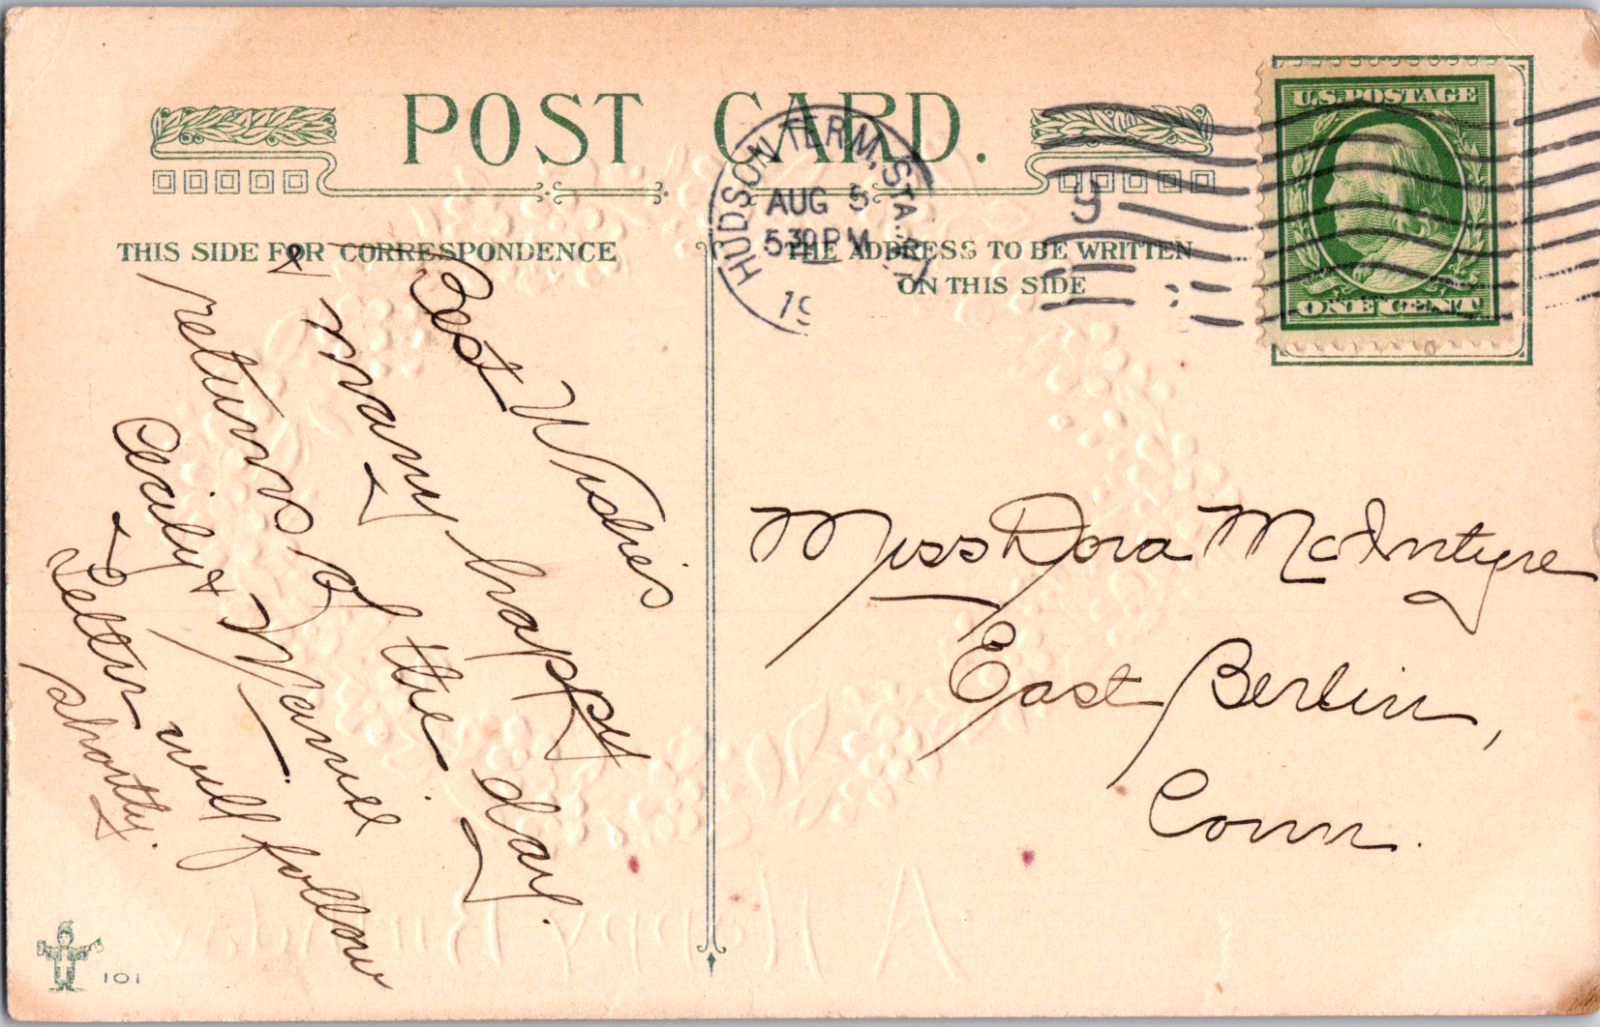 POST CARD.
THIS SIDE FOR CORRESPONDENCE
THE ADDRESS TO BE WRITTEN
ON THIS SIDE
HUDSON TERM. STA.
AUG 5
5 30 PM
19
U.S. POSTAGE
ONE CENT
Best Wishes
& many happy
returns of the day.
Cecily & Mamie
Letter will follow
shortly.
Miss Dora McIntyre
East Berlin,
Conn.
A Happy Birthday
101